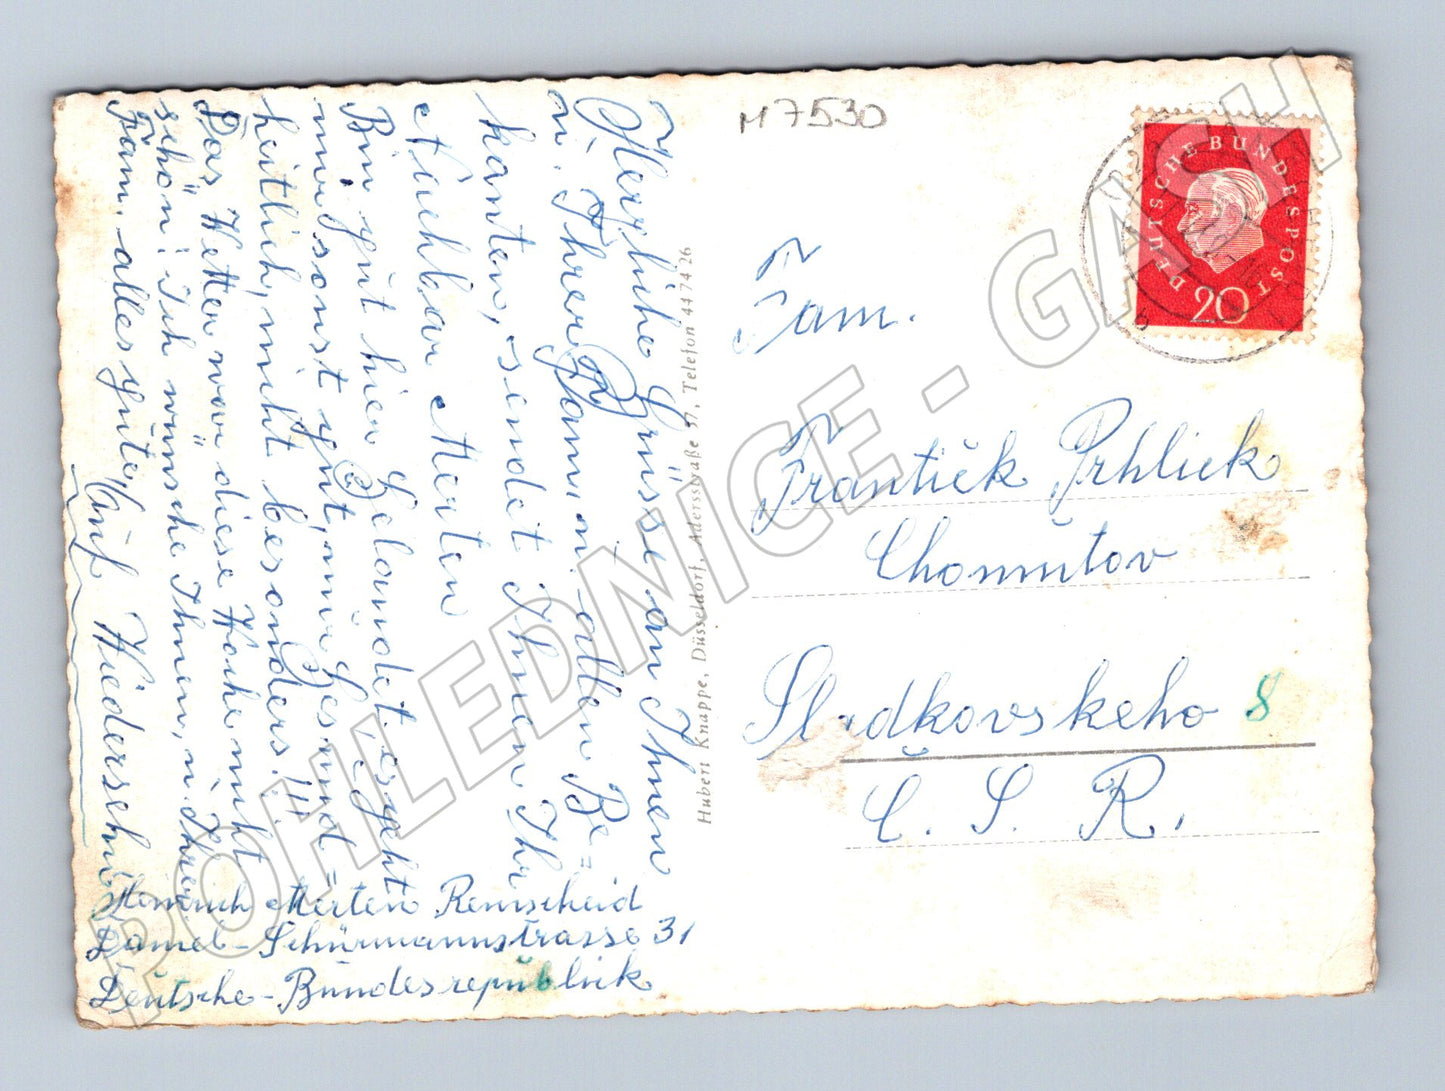 M7530
DEUTSCHE BUNDESPOST
20
Herzliche Grüsse an Ihnen
u. Ihrer Fam, u. allen Be=
kanten, sendet Ihnen Ihr
Nachbar Merten
Bin gut hier gelandet, es geht
mir sonst gut, nur Gesund=
heitlich, nicht besonders!!!
Das Wetter war diese Woche nicht
schön! Ich wünsche Ihnen, u. Ihrer
Fam, alles gute, Auf Wiedersehn
Heinrich Merten Remscheid
Daniel-Schürmannstrasse 31
Deutsche-Bundesrepublick
Hubert Knappe, Düsseldorf, Adersstraße 57, Telefon 44 74 26
Fam.
Frantićk Prhlick
Chomutov
Sladkovskeho 8
Č. S. R.
POHLEDNICE - GASH